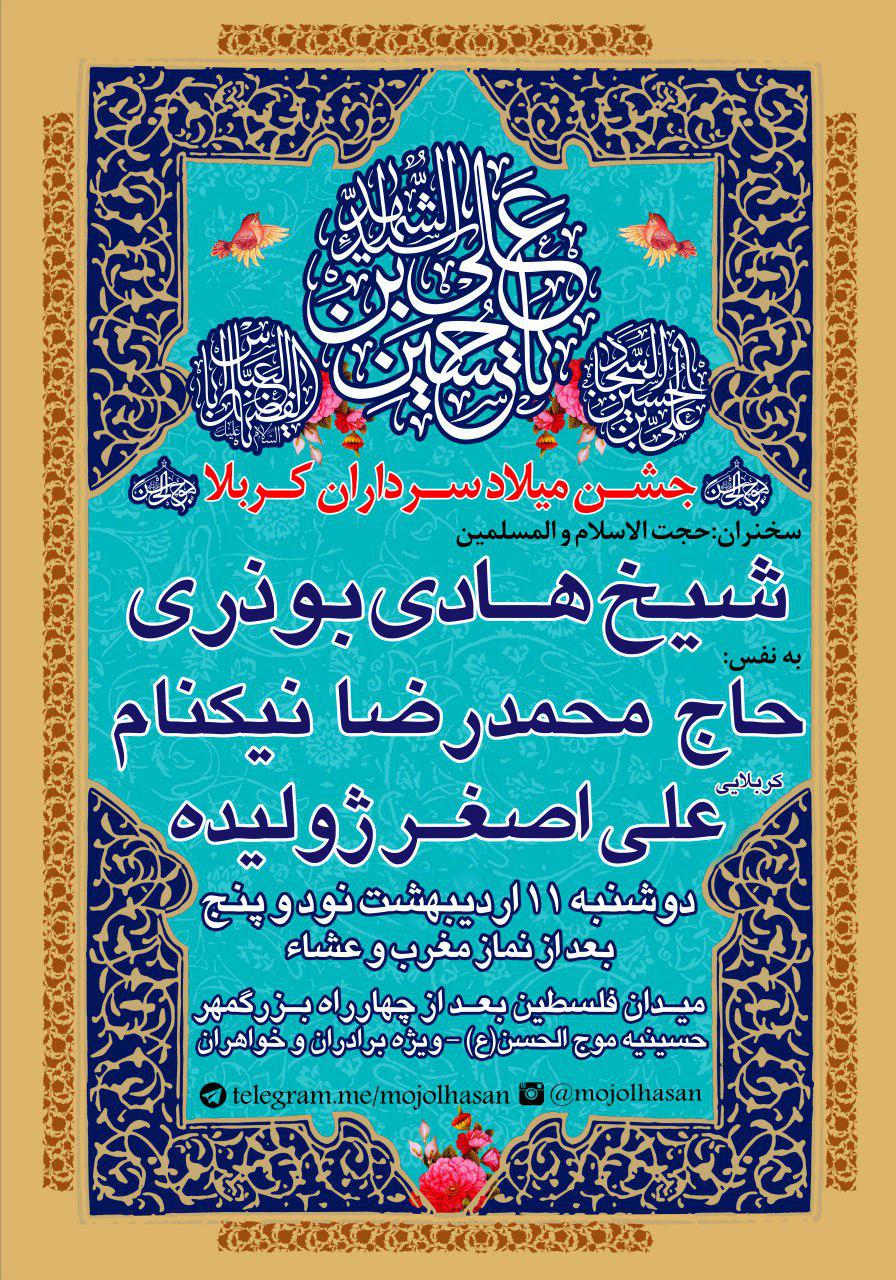 یا حسین بن علی سیدالشهداء
علی بن الحسین السجاد
یا اباالفضل العباس
جشن میلاد سرداران کربلا
موج الحسن
موج الحسن
سخنران:حجت الاسلام و المسلمین
شیخ هادی بوذری
به نفس:
حاج محمدرضا نیکنام
کربلایی
علی اصغر ژولیده
دوشنبه ۱۱ اردیبهشت نود و پنج
بعد از نماز مغرب و عشاء
میدان فلسطین بعد از چهارراه بزرگمهر
حسینیه موج الحسن(ع) - ویژه برادران و خواهران
telegram.me/mojolhasan @mojolhasan